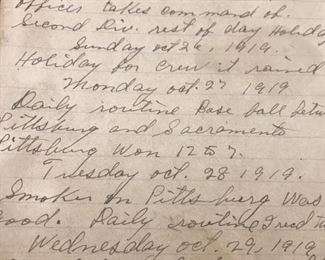 officer takes command of.
Second Div. rest of day Holiday
Sunday oct 26, 1919.
Holiday for crew it rained
Monday oct. 27 1919
Daily routine Base ball
Pittsburg and Sacramento
Pittsburg Won 12 to 7.
Tuesday oct. 28 1919.
Smoker on Pittsburg Was
Good. Daily routine I recd
Wednesday oct. 29, 1919